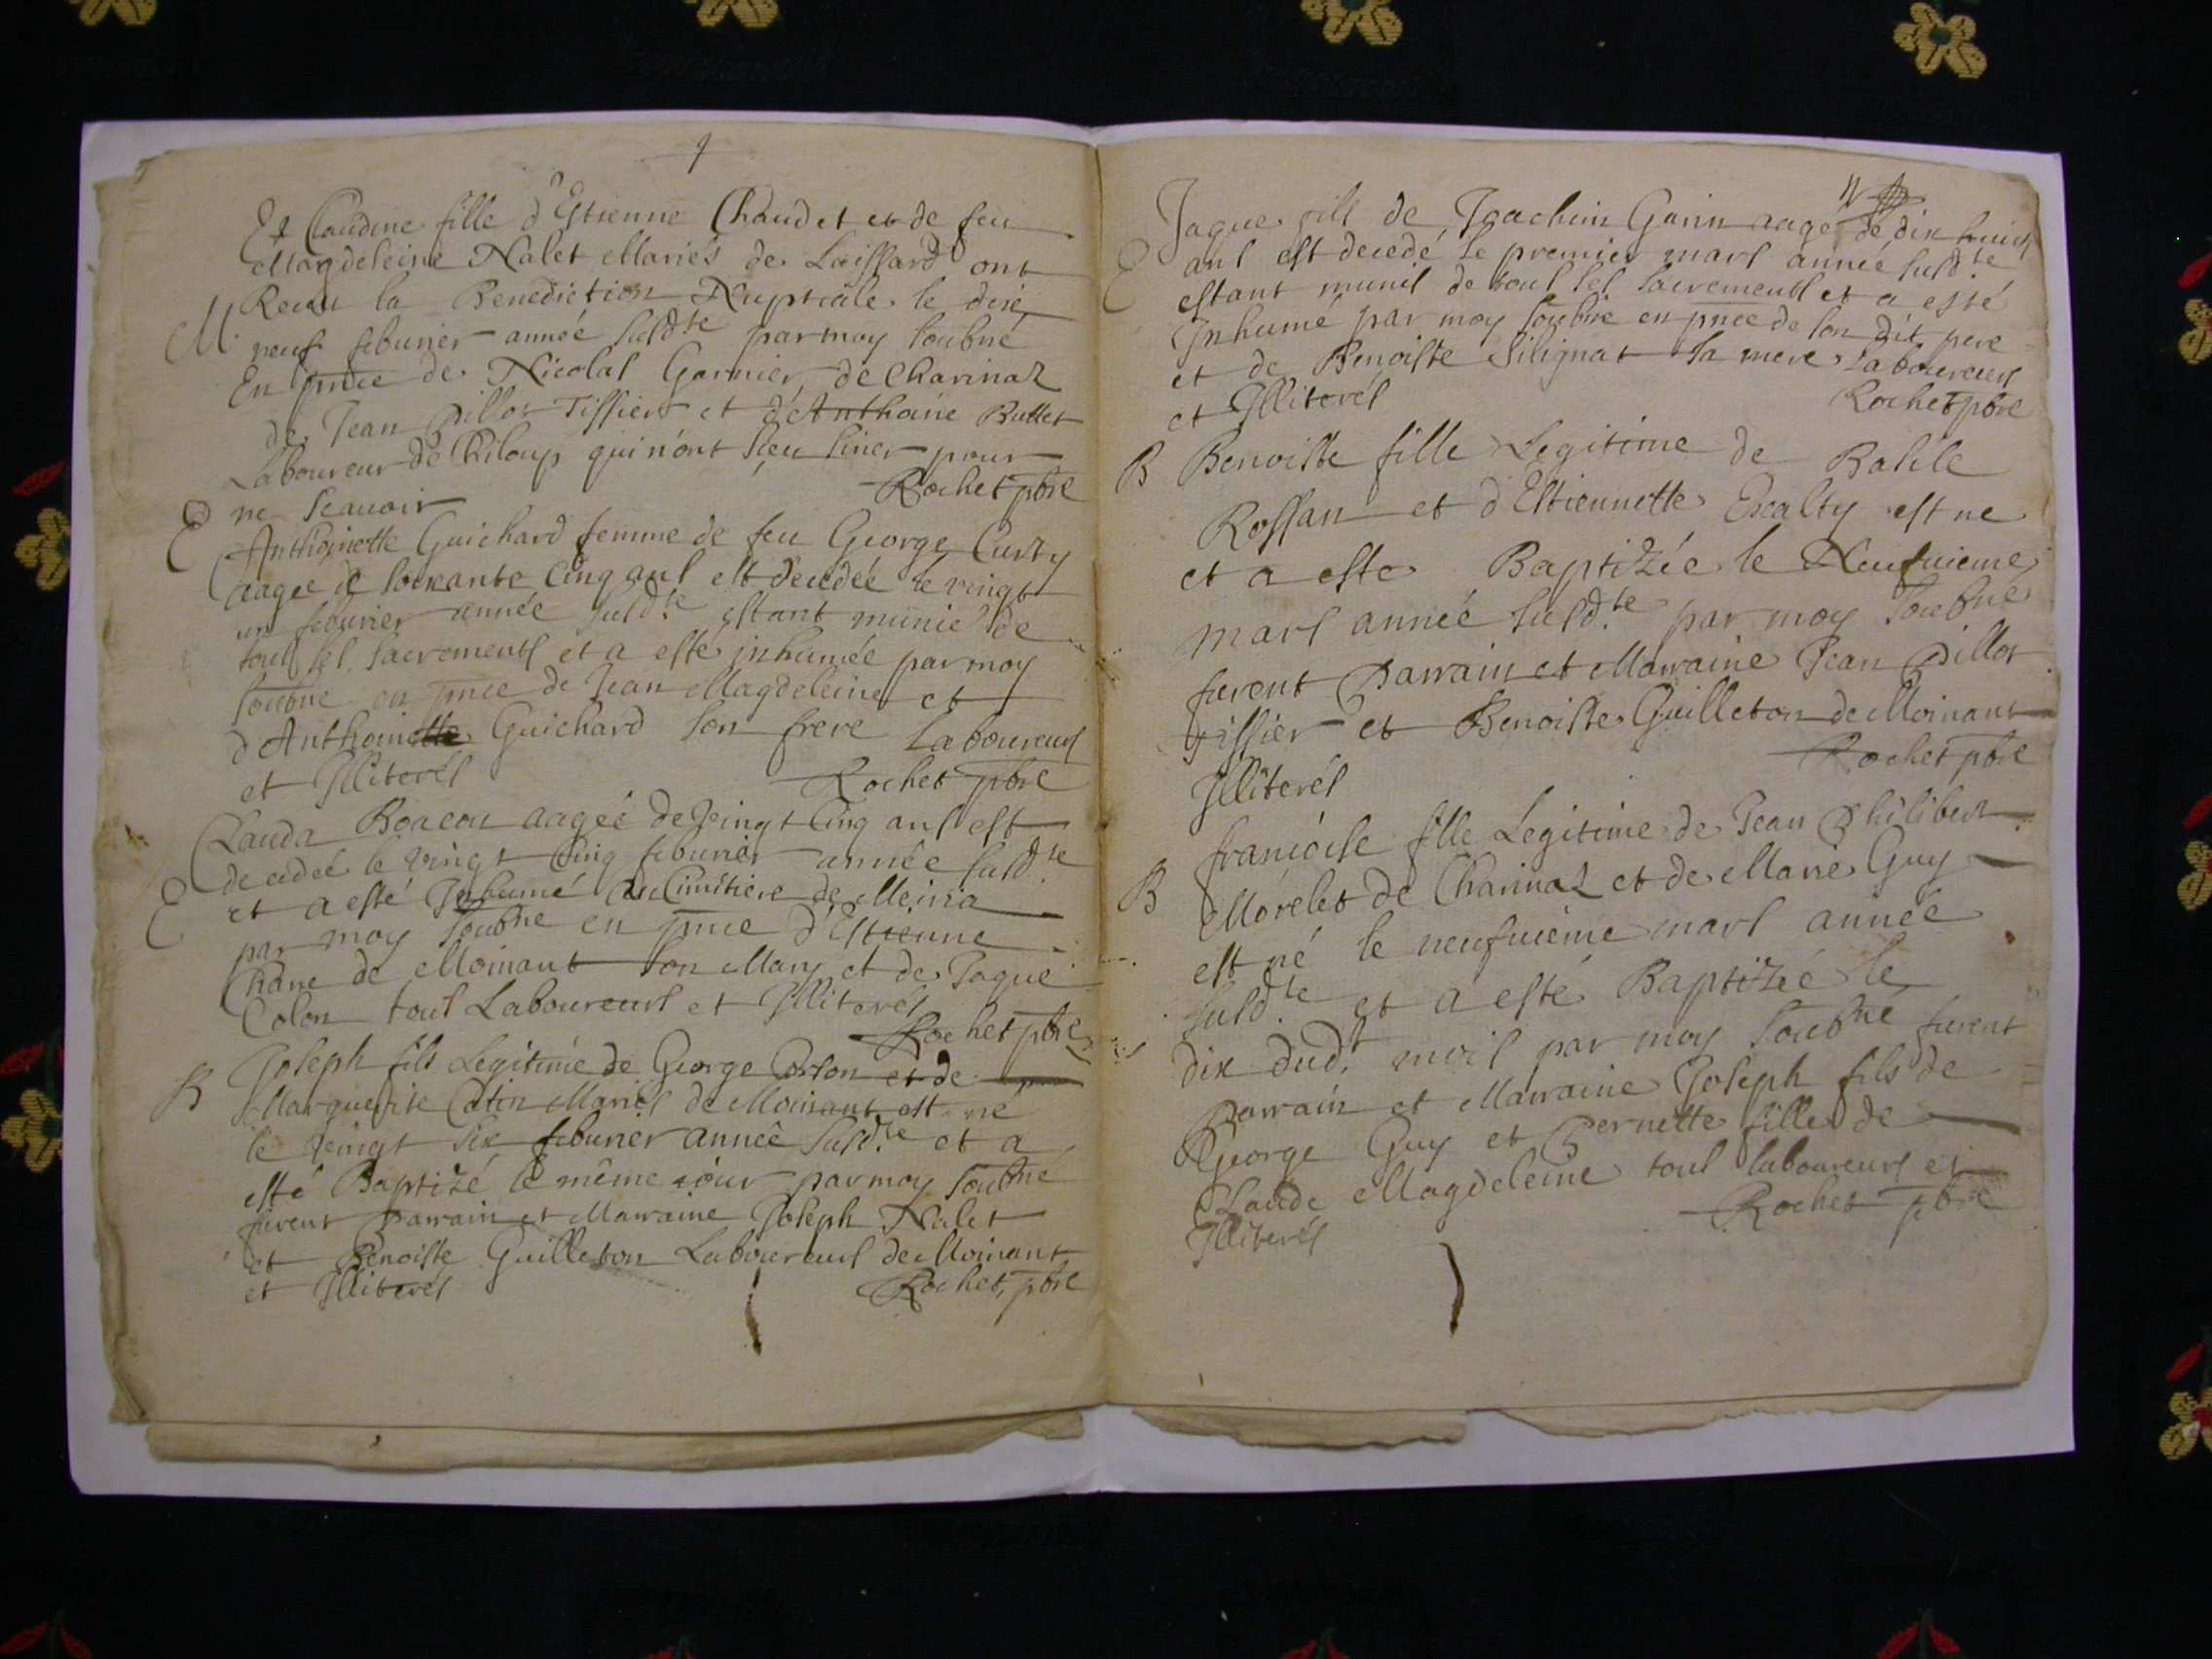 Et Claudine fille d'Estienne Chaudet et de feu
Magdeleine Nalet Mariés de Laissard ont
Receu la Benediction Nuptiale le dix
M neuf feburier année susd.te par moy soubné
En pnce de Nicolas Garnier de Charinaz
de Jean Pillot Tissier et d'Anthoine Bullet
Laboureur de Chiloup qui n'ont sceu siner pour
ne scauoir Rochet pbre
E Anthoinette Guichard femme de feu George Curty
aagee de soixante cinq ans est decedée le vingt
un feburier année susd.te estant munie de
tous ses sacrements et a esté inhumée par moy
soubné en pnce de Jean Magdeleine et
d'Anthoine Guichard son frere Laboureurs
et Illiterés Rochet pbre
Clauda aagée de vingt cinq ans est
decedée le vingt cinq feburier année susd.te
E et a esté Inhumé au Cimitiere de
par moy soubné en pnce d'Estienne
de Moinant son Mary et de Jaque
Colon tous Laboureurs et Illiterés
Rochet pbre
B Joseph fils Legitime de George et de
Marguerite Catin Mariés de Moinant est né
le vingt six feburier année susd.te et a
esté Baptizé le même iour par moy soubné
furent Parrain et Marraine Joseph Nalet
et Benoiste Guilleton Laboureurs de Moinant
et Illiterés Rochet pbre
Jaque fils de Joachim Garin aagé de dix huict
E ans est decedé le premier mars année susd.te
estant munis de tous ses sacrements et a esté
Inhumé par moy soubné en pnce de son dit pere
et de Benoiste Silignat sa mere Laboureurs
et Illiterés Rochet pbre
B Benoiste fille Legitime de Basile
Rossan et d'Estiennette est ne
et a este Baptizée le Neufuieme
mars année susd.te par moy soubné
furent Parrain et Marraine Jean Pillot
tissier et Benoiste Guilleton de Moinant
Illiterés Rochet pbre
françoise fille Legitime de Jean Philibert
B Morelet de Charinaz et de Marie Guy
est né le neufuieme mars année
susd.te et a esté Baptizée le
dix dud.t mois par moy soubné furent
Parrain et Marraine Joseph fils de
George Guy et Pernette fille de
Claude Magdeleine tous laboureurs et
Illiterés Rochet pbre